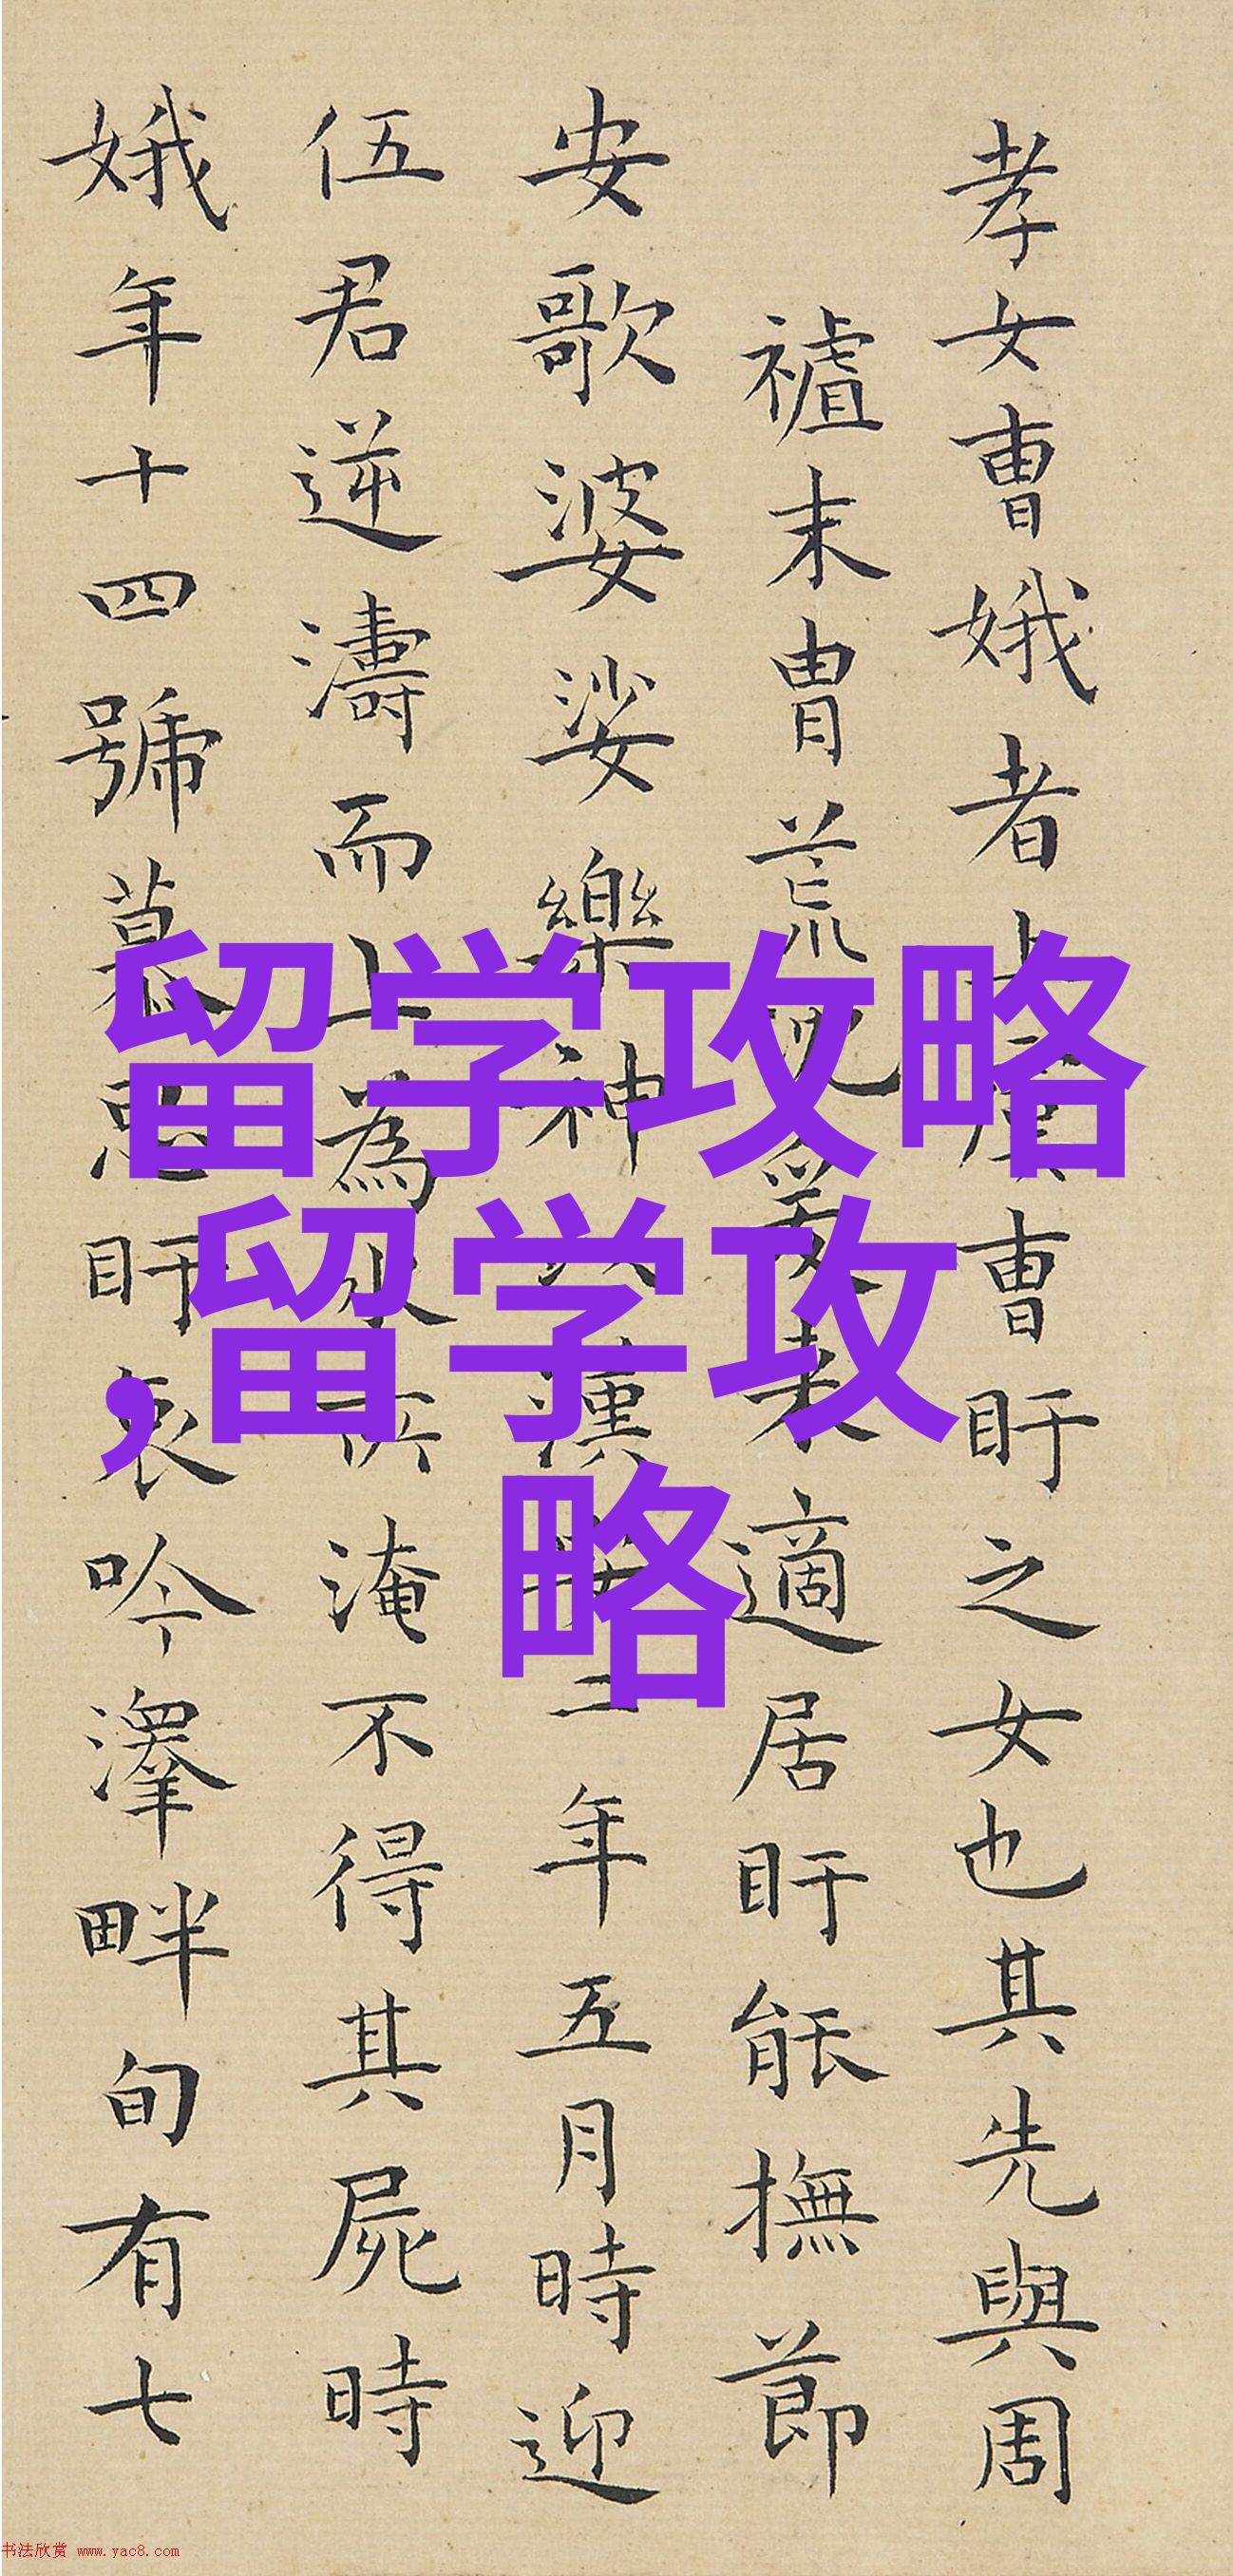 孝女曹娥者上虞曹盱之女也其先與周
末胄荒爰来適居盱能撫節
安歌婆娑樂神以漢安二年五月時迎
伍君逆濤而上為水所淹不得其屍時
娥年十四號慕思盱哀吟澤畔旬有七
留学攻略
,留学攻
略
书法欣赏 www.yac8.com